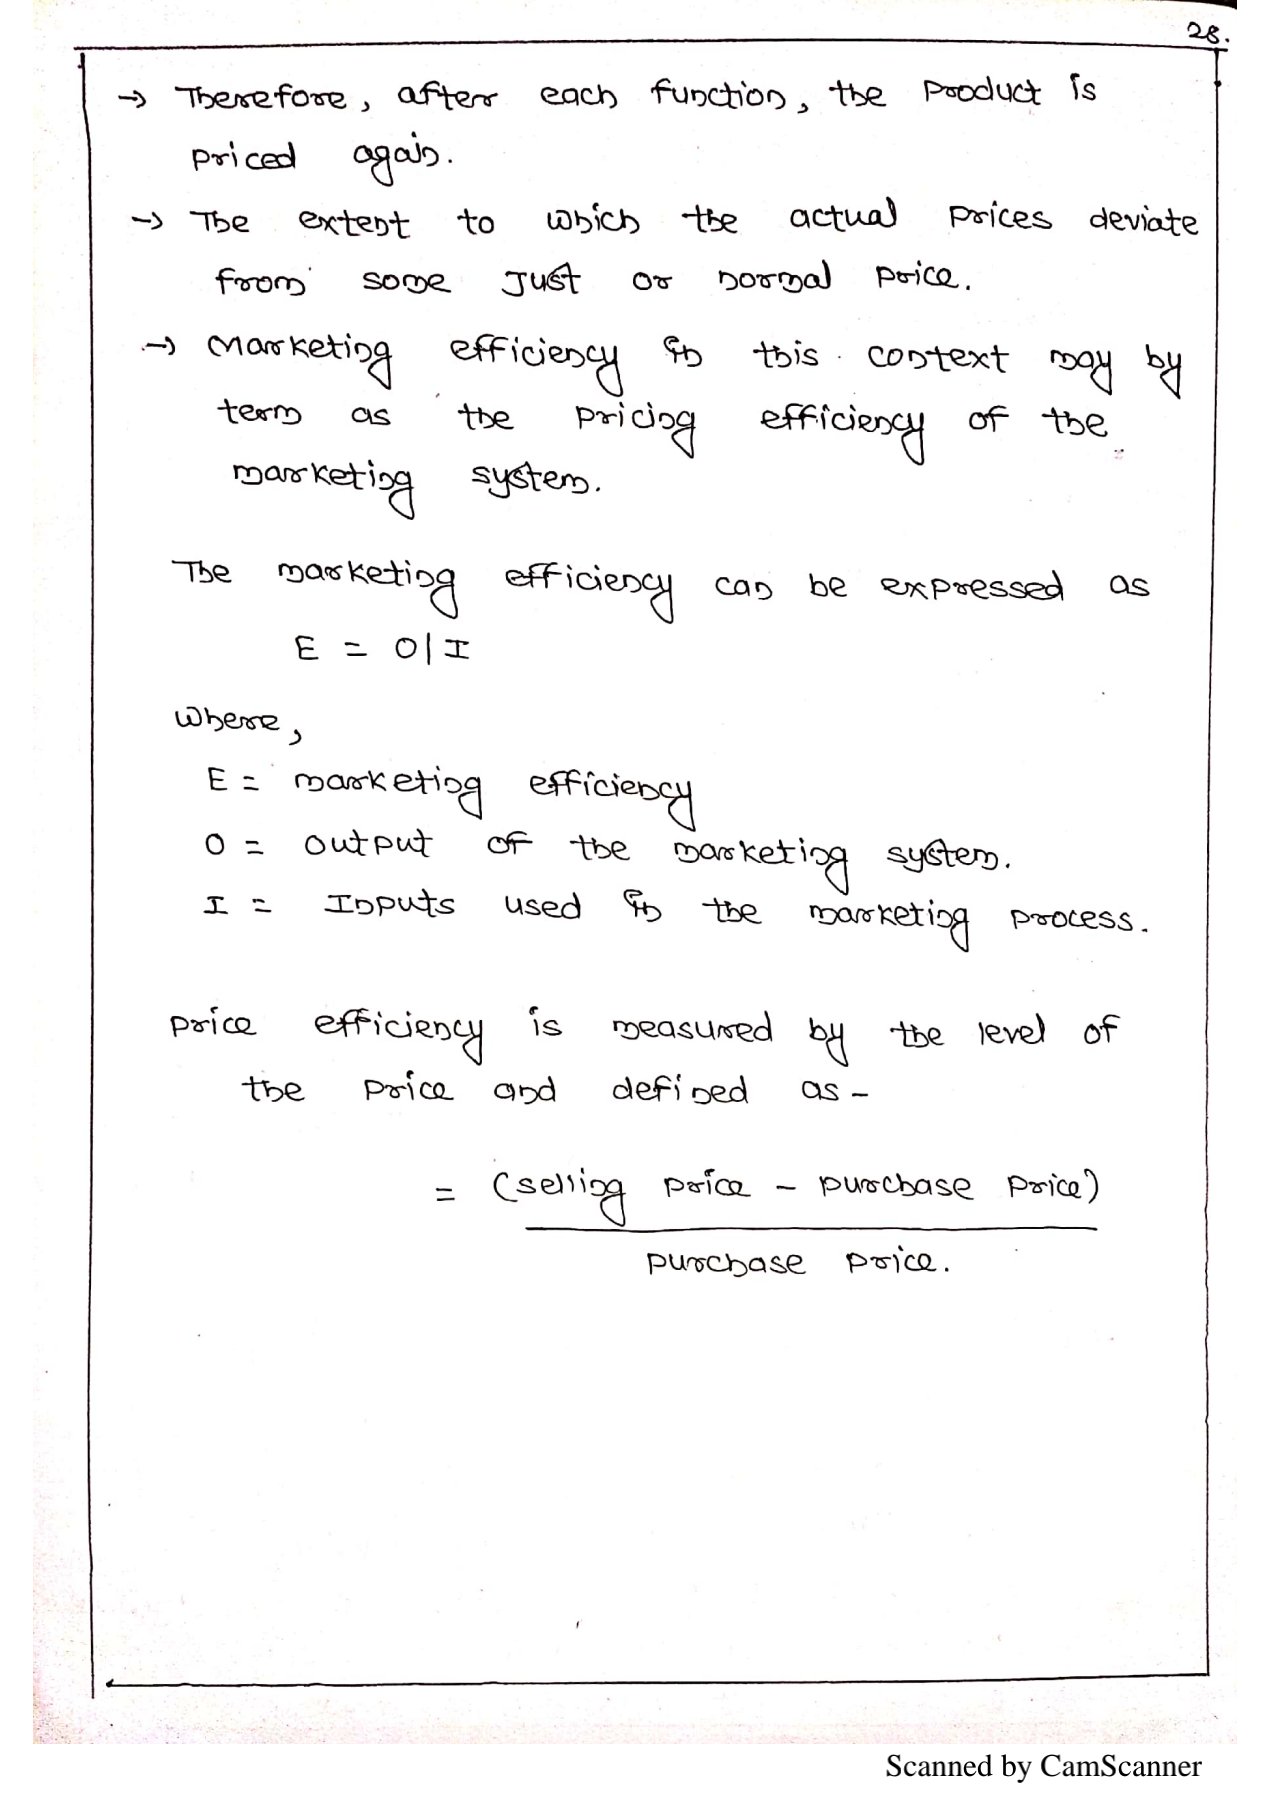 28.
→ Therefore, after each function, the product is
priced again.
→ The extent to which the actual prices deviate
from some Just or normal price.
→ Marketing efficiency in this context may by
term as the pricing efficiency of the
marketing system.
The marketing efficiency can be expressed as
E = O|I
Where,
E = marketing efficiency
O = output of the marketing system.
I = Inputs used in the marketing process.
Price efficiency is measured by the level of
the price and defined as -
= (selling price - purchase price)
purchase price.
Scanned by CamScanner